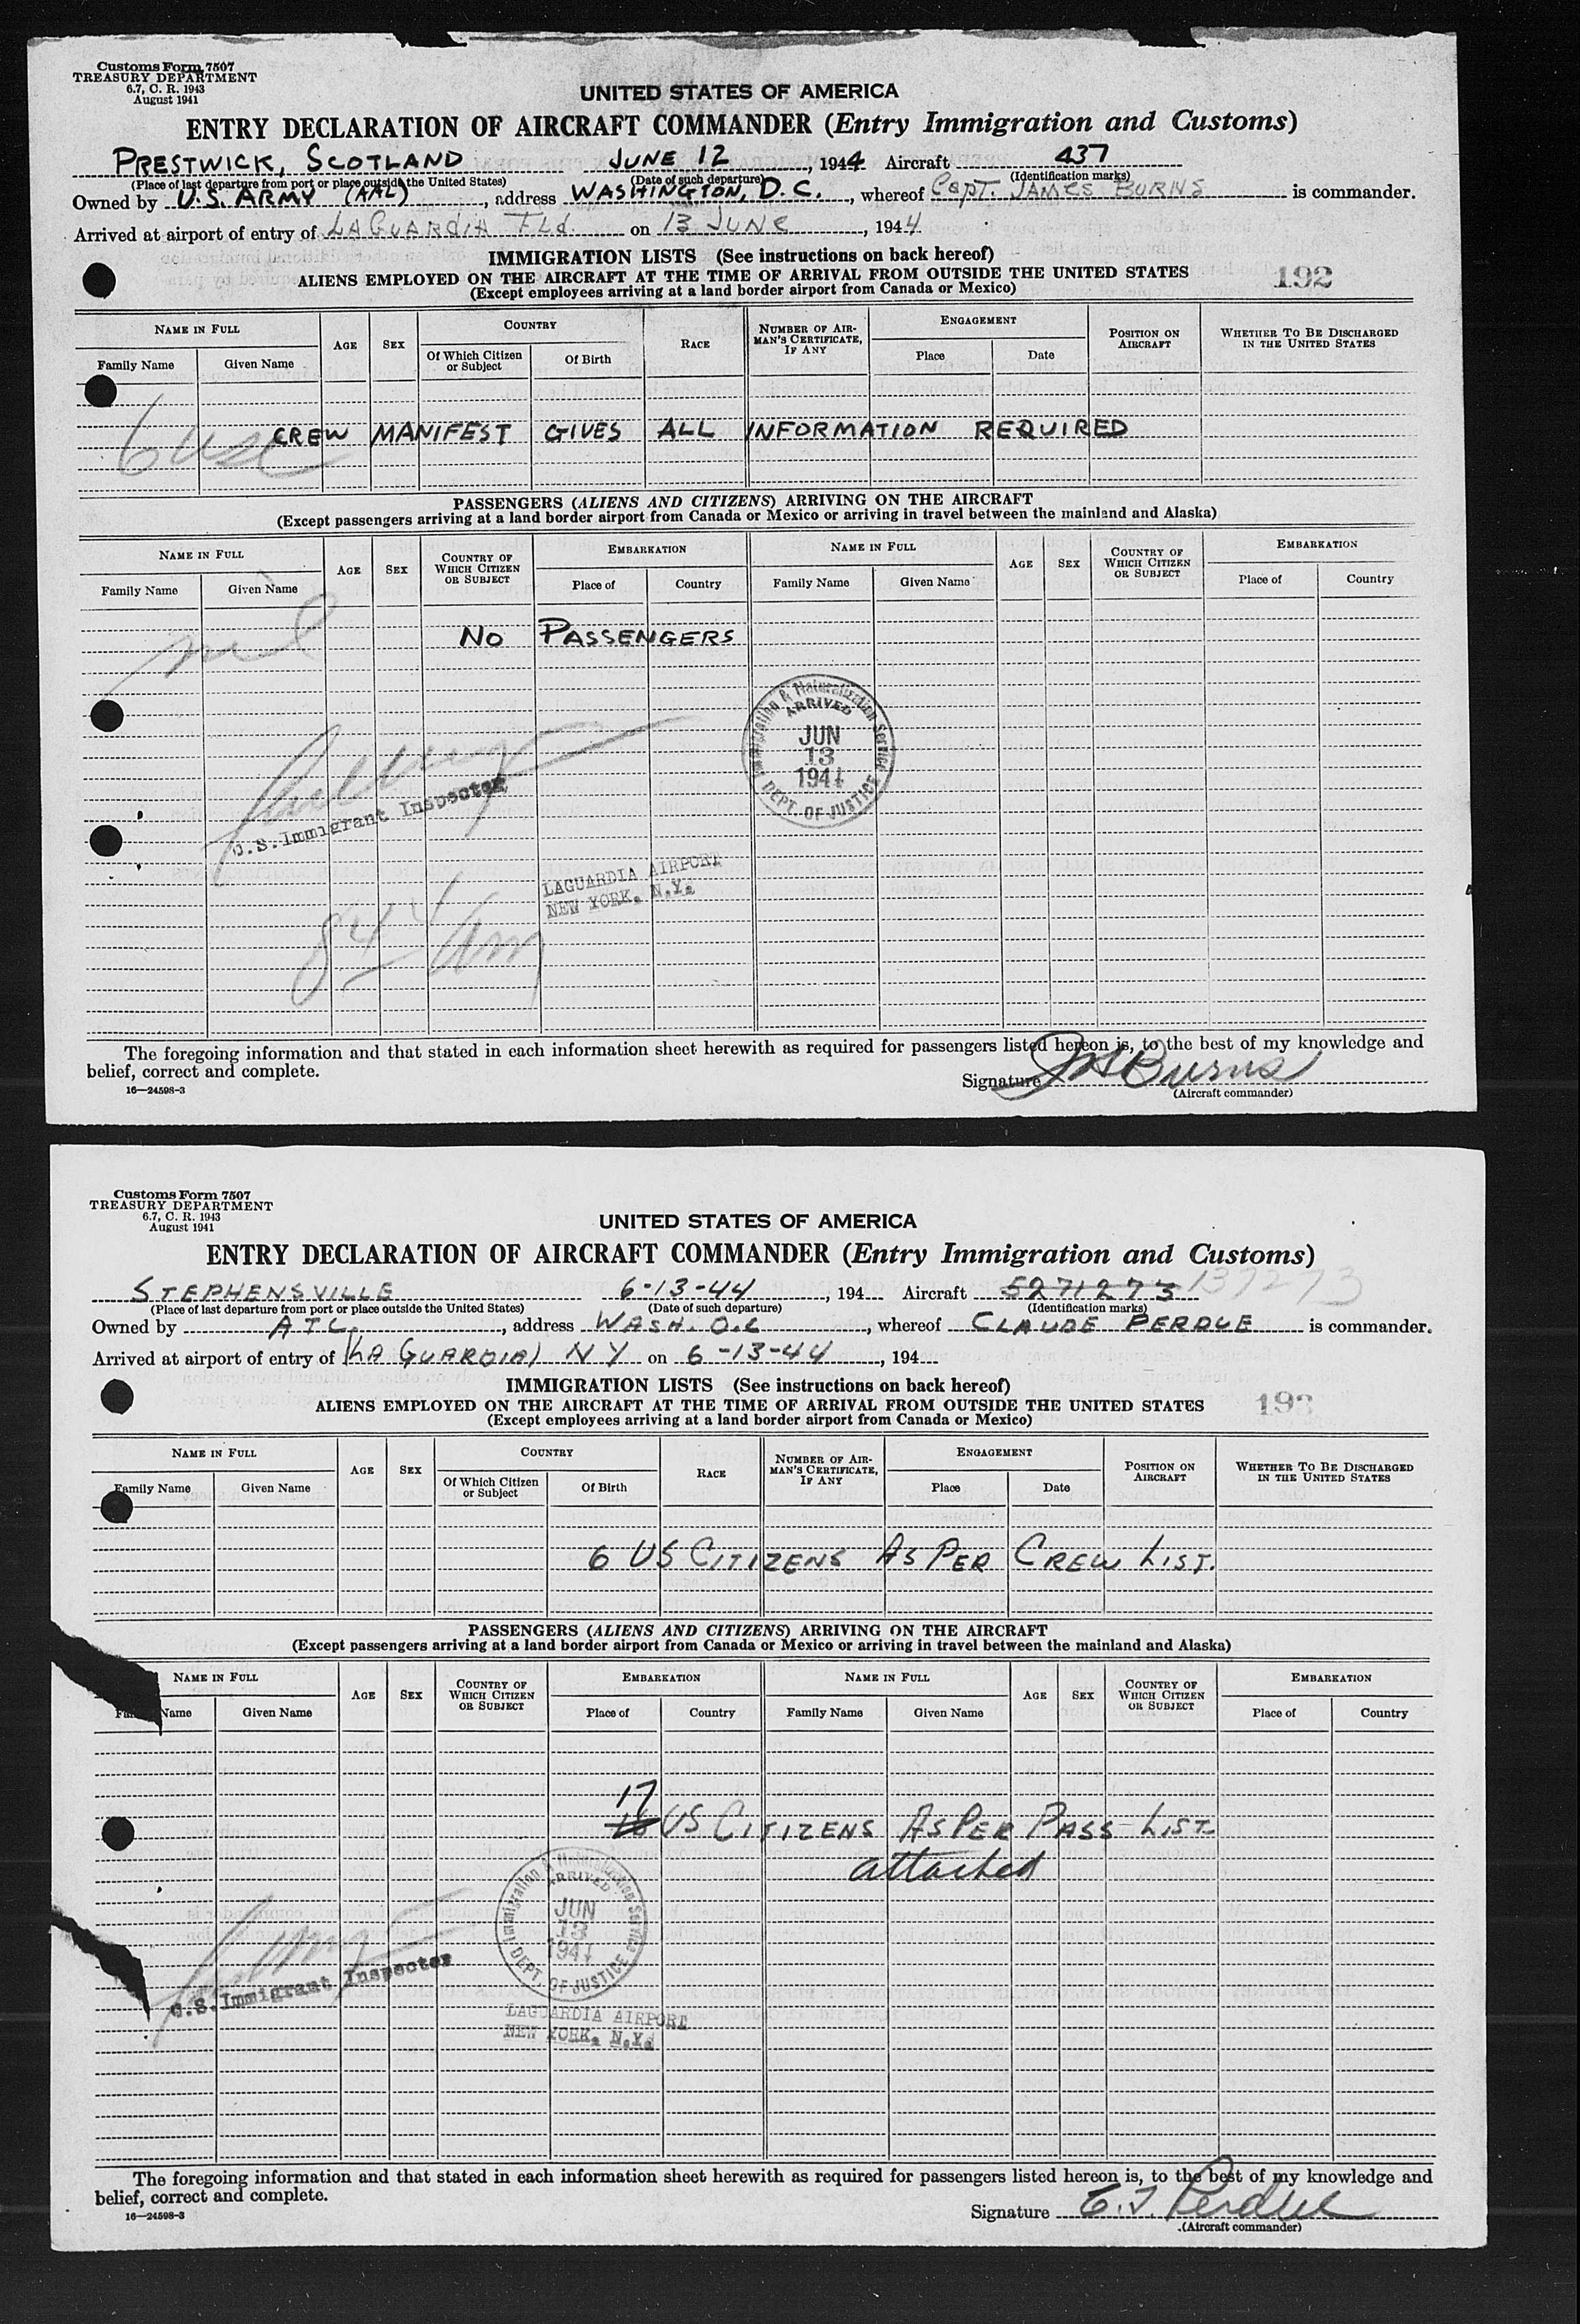 Customs Form 7507
TREASURY DEPARTMENT
6.7, C. R. 1943
August 1941
UNITED STATES OF AMERICA
ENTRY DECLARATION OF AIRCRAFT COMMANDER (Entry Immigration and Customs)
PRESTWICK, SCOTLAND JUNE 12, 1944 Aircraft 437
(Place of last departure from port or place outside the United States) (Date of such departure) (Identification marks)
Owned by U.S. ARMY (AAL), address WASHINGTON, D.C., whereof Capt. JAMES BURNS is commander.
Arrived at airport of entry of LAGUARDIA FLd. on 13 JUNE, 1944
IMMIGRATION LISTS (See instructions on back hereof)
ALIENS EMPLOYED ON THE AIRCRAFT AT THE TIME OF ARRIVAL FROM OUTSIDE THE UNITED STATES 192
(Except employees arriving at a land border airport from Canada or Mexico)
NAME IN FULL AGE SEX COUNTRY RACE NUMBER OF AIRMAN'S CERTIFICATE, IF ANY ENGAGEMENT POSITION ON AIRCRAFT WHETHER TO BE DISCHARGED IN THE UNITED STATES
Family Name Given Name Of Which Citizen or Subject Of Birth Place Date
6 usc CREW MANIFEST GIVES ALL INFORMATION REQUIRED
PASSENGERS (ALIENS AND CITIZENS) ARRIVING ON THE AIRCRAFT
(Except passengers arriving at a land border airport from Canada or Mexico or arriving in travel between the mainland and Alaska)
NAME IN FULL AGE SEX COUNTRY OF WHICH CITIZEN OR SUBJECT EMBARKATION NAME IN FULL AGE SEX COUNTRY OF WHICH CITIZEN OR SUBJECT EMBARKATION
Family Name Given Name Place of Country Family Name Given Name Place of Country
nil NO PASSENGERS
Immigration & Naturalization Service
ARRIVED
JUN
13
1944
DEPT. OF JUSTICE
U.S. Immigrant Inspector
LAGUARDIA AIRPORT
NEW YORK, N.Y.
The foregoing information and that stated in each information sheet herewith as required for passengers listed hereon is, to the best of my knowledge and
belief, correct and complete.
Signature Burns
16—24598-3 (Aircraft commander)
Customs Form 7507
TREASURY DEPARTMENT
6.7, C. R. 1943
August 1941
UNITED STATES OF AMERICA
ENTRY DECLARATION OF AIRCRAFT COMMANDER (Entry Immigration and Customs)
STEPHENSVILLE 6-13-44, 194 Aircraft 5271273 137273
(Place of last departure from port or place outside the United States) (Date of such departure) (Identification marks)
Owned by ATC, address WASH. D.C, whereof CLAUDE PERDUE is commander.
Arrived at airport of entry of (LA GUARDIA) N Y on 6-13-44, 194
IMMIGRATION LISTS (See instructions on back hereof)
ALIENS EMPLOYED ON THE AIRCRAFT AT THE TIME OF ARRIVAL FROM OUTSIDE THE UNITED STATES 193
(Except employees arriving at a land border airport from Canada or Mexico)
NAME IN FULL AGE SEX COUNTRY RACE NUMBER OF AIRMAN'S CERTIFICATE, IF ANY ENGAGEMENT POSITION ON AIRCRAFT WHETHER TO BE DISCHARGED IN THE UNITED STATES
Family Name Given Name Of Which Citizen or Subject Of Birth Place Date
6 US CITIZENS AS PER CREW LIST.
PASSENGERS (ALIENS AND CITIZENS) ARRIVING ON THE AIRCRAFT
(Except passengers arriving at a land border airport from Canada or Mexico or arriving in travel between the mainland and Alaska)
NAME IN FULL AGE SEX COUNTRY OF WHICH CITIZEN OR SUBJECT EMBARKATION NAME IN FULL AGE SEX COUNTRY OF WHICH CITIZEN OR SUBJECT EMBARKATION
Name Given Name Place of Country Family Name Given Name Place of Country
17
16 US CITIZENS AS PER PASS LIST
attached
Immigration & Naturalization Service
ARRIVED
JUN
13
1944
DEPT. OF JUSTICE
U.S. Immigrant Inspector
LAGUARDIA AIRPORT
NEW YORK, N.Y.
The foregoing information and that stated in each information sheet herewith as required for passengers listed hereon is, to the best of my knowledge and
belief, correct and complete.
Signature C. J. Perdue
16—24598-3 (Aircraft commander)